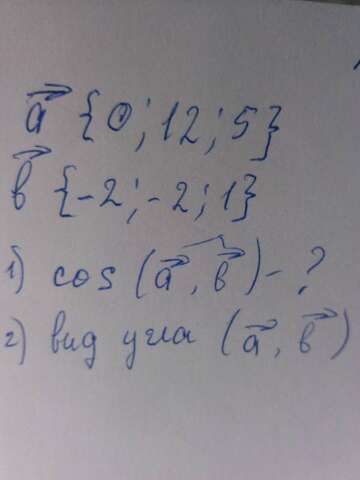 a⃗ {0; 12; 5}
в⃗ {-2; -2; 1}
1) cos (a⃗, в⃗) - ?
2) вид угла (a⃗, в⃗)